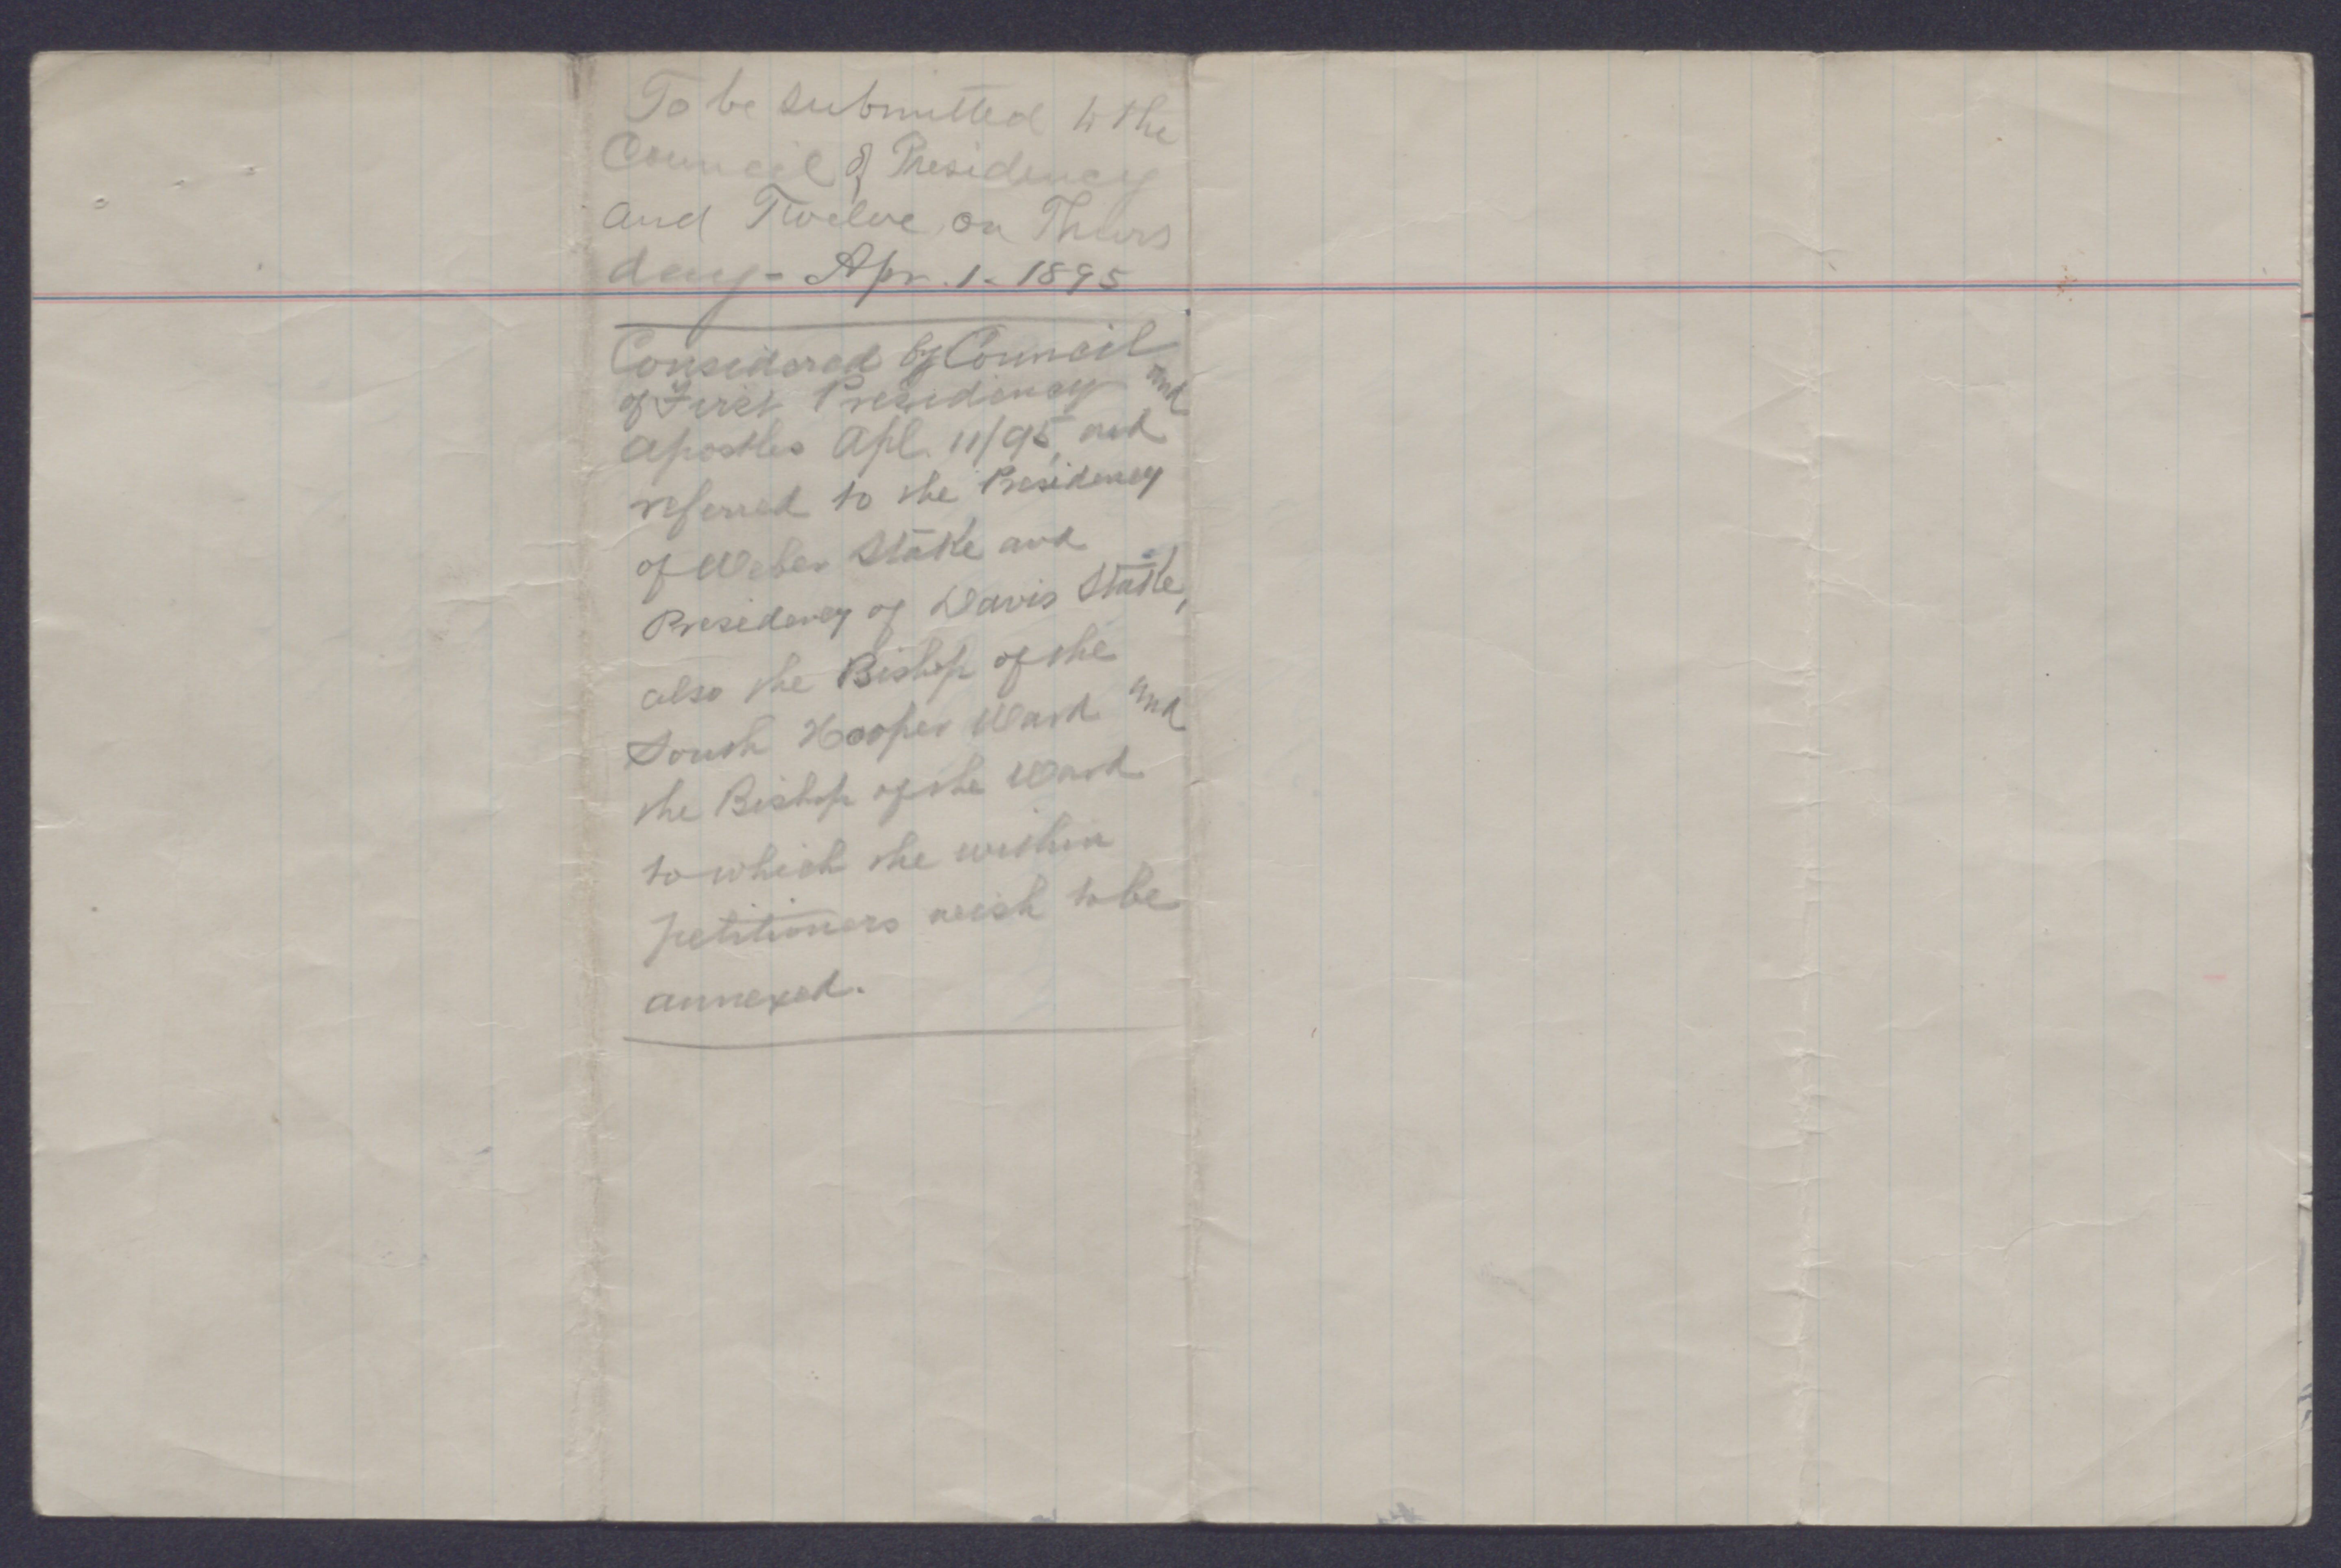 To be submitted to the
Council of Presidency
and Twelve, on Thurs
day - Apr. 1. 1895
Considered by Council
of First Presidency and
Apostles Apl. 11/95, and
referred to the Presidency
of Weber Stake and
Presidency of Davis Stake,
also the Bishop of the
South Hooper Ward and
the Bishop of the Ward
to which the within
petitioners wish to be
annexed.